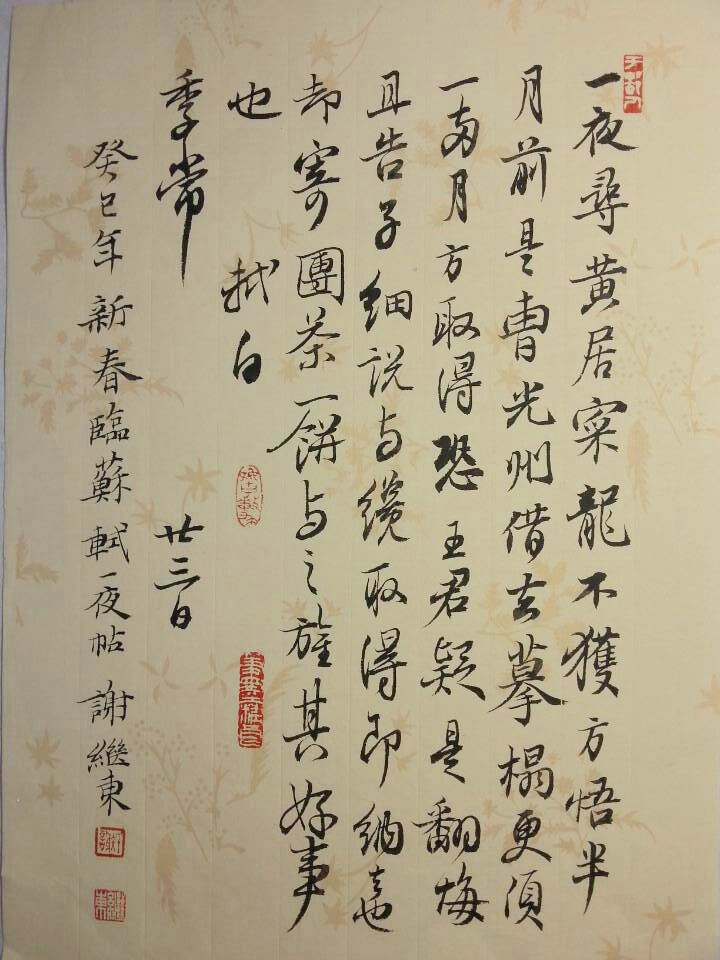 一夜尋黄居寀龍不獲方悟半
月前是曹光州借去摹榻更須
一两月方取得恐王君疑是翻悔
且告子細説与纔取得即納去也
却寄團茶一餅与之旌其好事
也 軾白
季常 廿三日
癸巳年新春臨蘇軾一夜帖 謝繼東